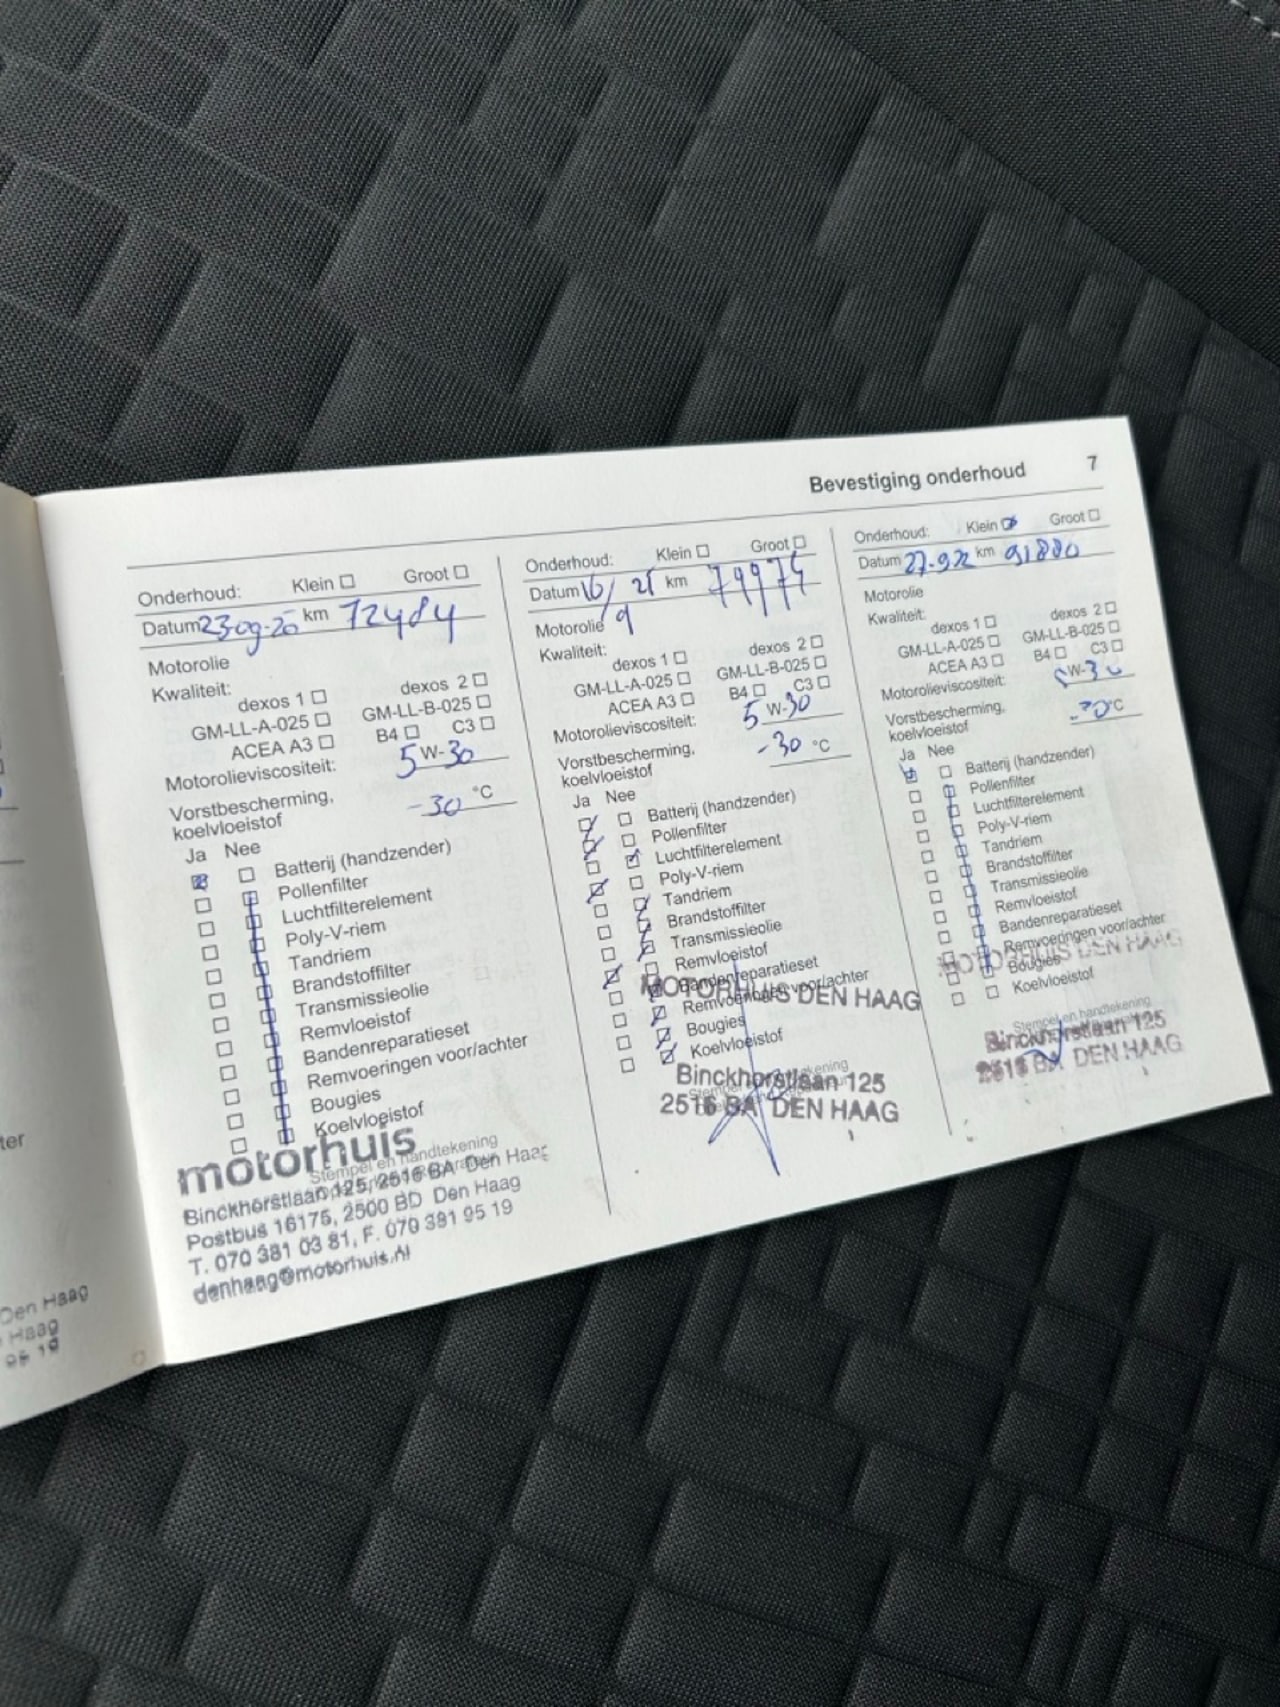 Bevestiging onderhoud 7
Onderhoud: Klein ☐ Groot ☐
Datum 23-09-20 km 72484
Motorolie
Kwaliteit:
dexos 1 ☐ dexos 2 ☐
GM-LL-A-025 ☐ GM-LL-B-025 ☐
ACEA A3 ☐ B4 ☐ C3 ☐
Motorolieviscositeit: 5 W-30
Vorstbescherming,
koelvloeistof -30 °C
Ja Nee
Batterij (handzender)
Pollenfilter
Luchtfilterelement
Poly-V-riem
Tandriem
Brandstoffilter
Transmissieolie
Remvloeistof
Bandenreparatieset
Remvoeringen voor/achter
Bougies
Koelvloeistof
motorhuis
Stempel en handtekening
Binckhorstlaan 125, 2516 BA Den Haag
Postbus 16175, 2500 BD Den Haag
T. 070 381 03 81, F. 070 391 95 19
denhaag@motorhuis.nl
Onderhoud: Klein ☐ Groot ☐
Datum 16/9 21 km 79974
Motorolie
Kwaliteit:
dexos 1 ☐ dexos 2 ☐
GM-LL-A-025 ☐ GM-LL-B-025 ☐
ACEA A3 ☐ B4 ☐ C3 ☐
Motorolieviscositeit: 5 W-30
Vorstbescherming,
koelvloeistof -30 °C
Ja Nee
Batterij (handzender)
Pollenfilter
Luchtfilterelement
Poly-V-riem
Tandriem
Brandstoffilter
Transmissieolie
Remvloeistof
Bandenreparatieset
Remvoeringen voor/achter
MOTORHUIS DEN HAAG
Bougies
Koelvloeistof
Binckhorstlaan 125
2516 BA DEN HAAG
Onderhoud: Klein ☒ Groot ☐
Datum 27-9-22 km 91880
Motorolie
Kwaliteit:
dexos 1 ☐ dexos 2 ☐
GM-LL-A-025 ☐ GM-LL-B-025 ☐
ACEA A3 ☐ B4 ☐ C3 ☐
Motorolieviscositeit: 5 W-30
Vorstbescherming,
koelvloeistof °C
Ja Nee
Batterij (handzender)
Pollenfilter
Luchtfilterelement
Poly-V-riem
Tandriem
Brandstoffilter
Transmissieolie
Remvloeistof
Bandenreparatieset
Remvoeringen voor/achter
MOTORHUIS DEN HAAG
Bougies
Koelvloeistof
Stempel en handtekening
Binckhorstlaan 125
2516 BA DEN HAAG
ter
Den Haag
Haag
95 19